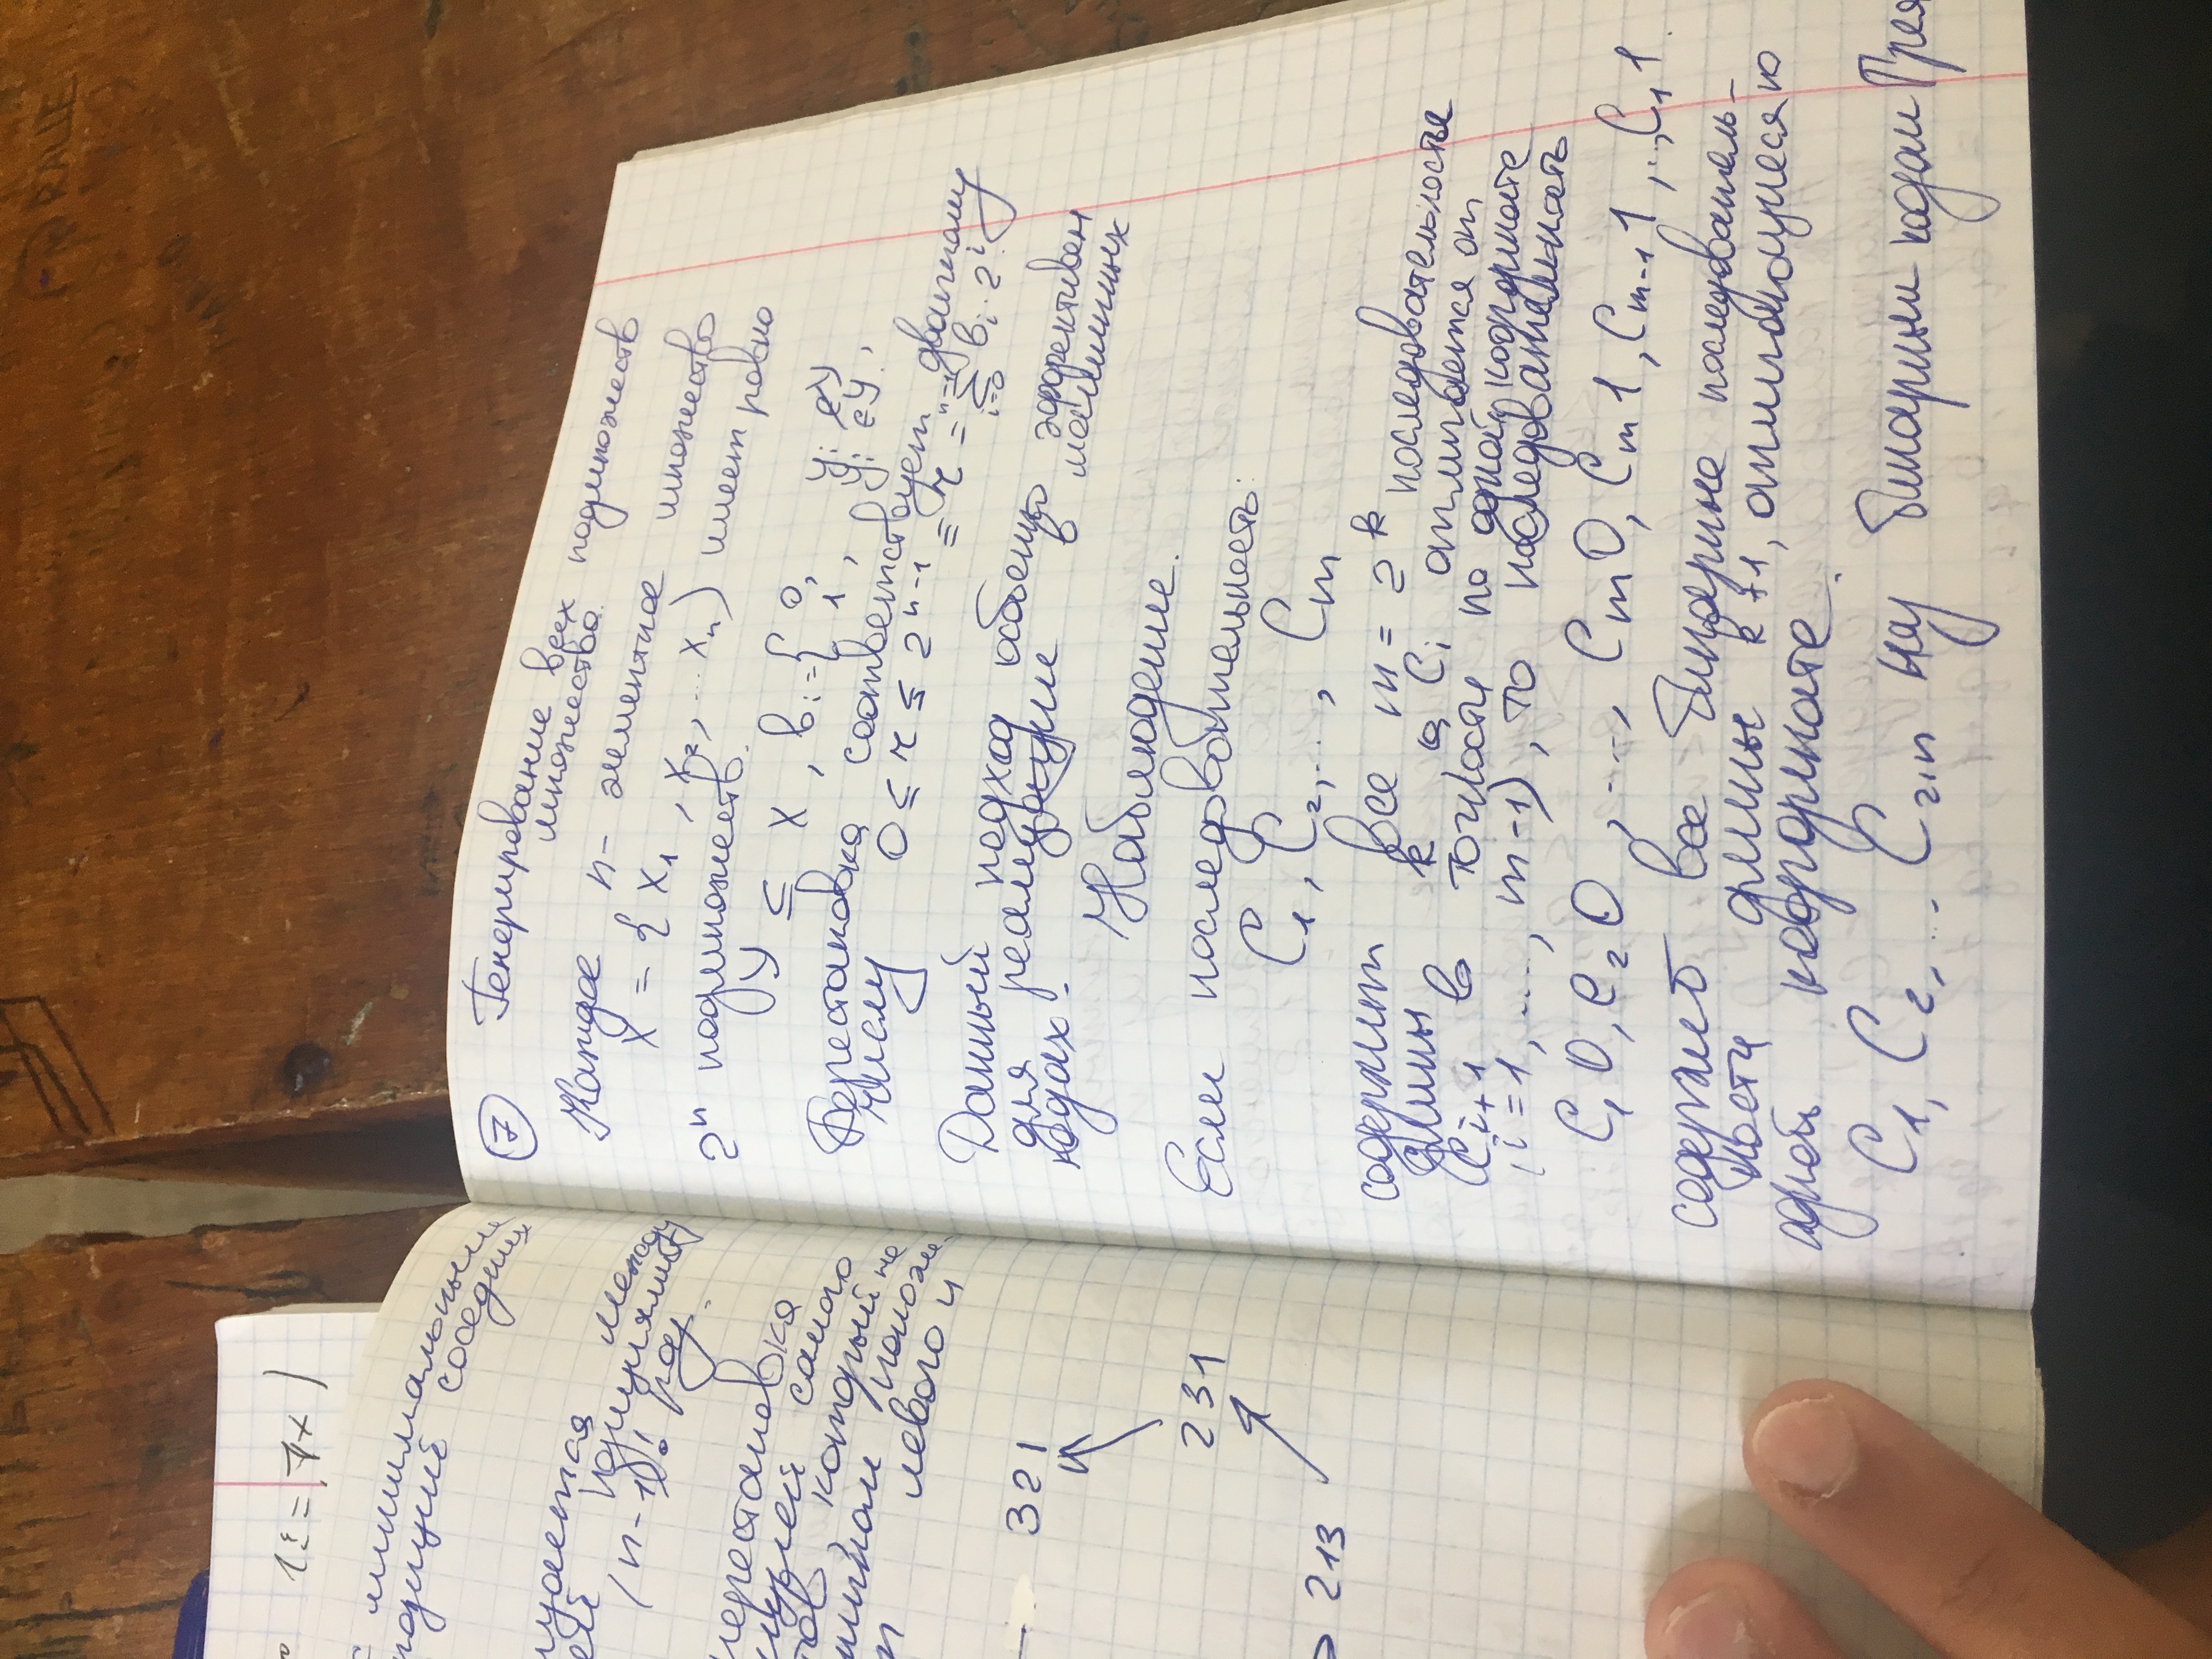 1i = 7+ )
с минимальным
позиций соседних
между
позициями
(n-1)! раз.
перестановка
самого
тов, который не
положе-
левого и
321
231
213
⑦ Генерирование всех подмножеств
множества.
Каждое n- элементное множество
X = { x₁ , x₂, ... xₙ) имеет ровно
2ⁿ подмножеств.
Y ⊆ X , bᵢ = { 0, yᵢ ∉ Y ,
1 , yᵢ ∈ Y.
Перестановка соответствует двоичному
числу 0 ≤ r ≤ 2ⁿ⁻¹ = r = Σ bᵢ · 2ⁱ
n-1
i=0
Данный подход особенно эффективен
для реализации в машинных
кодах.
Наблюдение.
Если последовательность:
C₁ , C₂,..., Cm
содержит все m = 2ᵏ последовательностье
длины k , а Cᵢ отличается от
Cᵢ₊₁ в точности по одной координате
(i = 1, ...., m-1), то последовательность
C₁0, C₂0 , ...., Cm0, Cm1, Cm-₁1 ,..,C₁1.
содержит все бинарные последователь-
ности длины k+1, отличающиеся ю
одной координате.
C₁, C₂, ... C₂,n наз бинарным кодом Грея